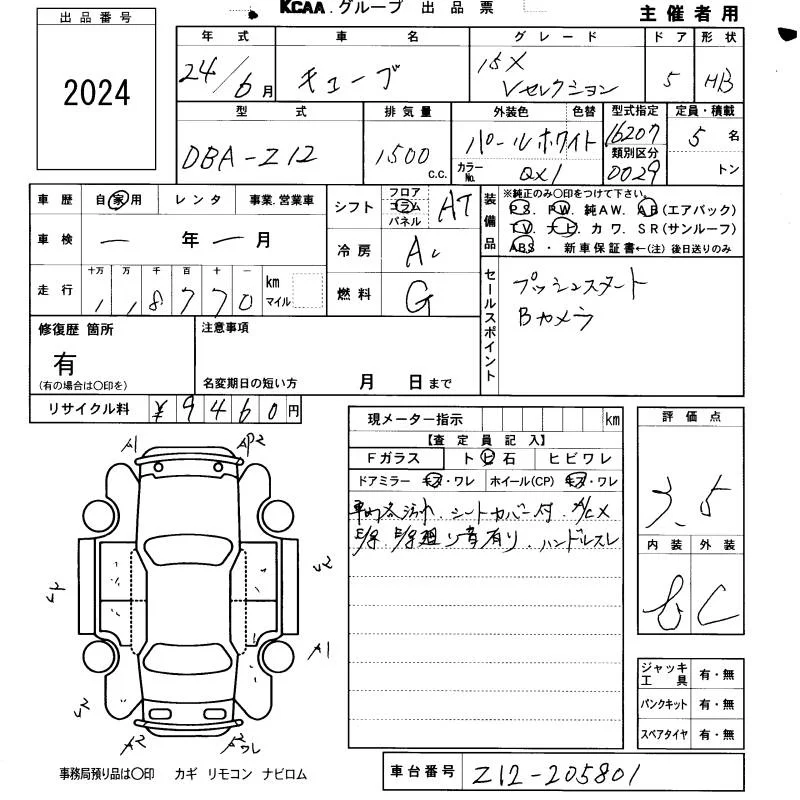 KCAA.グループ 出品票
主催者用
出品番号
2024
年式 車名 グレード ドア 形状
24/6月 キューブ 15X Vセレクション 5 HB
型式 排気量 外装色 色替 型式指定 定員・積載
DBA-Z12 1500 C.C. パールホワイト カラーNo. QX1 16207 類別区分 0029 5名 トン
車歴 自家用 レンタ 事業.営業車
車検 ー年ー月
走行 十万 万 千 百 十 一 km マイル
1 1 8 7 7 0
シフト フロア コラム パネル AT
冷房 AC
燃料 G
装備品
※純正のみ○印をつけて下さい。
PS. PW. 純AW. AB(エアバック)
TV. ナビ カワ. SR(サンルーフ)
ABS・新車保証書←(注)後日送りのみ
セールスポイント
プッシュスタート
Bカメラ
修復歴 箇所
有
(有の場合は○印を)
注意事項
名変期日の短い方 月 日まで
リサイクル料 ¥9460円
現メーター指示 km
【査定員記入】
Fガラス トビ石 ヒビワレ
ドアミラー キズ・ワレ ホイール(CP) キズ・ワレ
シートカバー付
有り.ハンドルスレ
評価点
3.5
内装 外装
C
ジャッキ工具 有・無
パンクキット 有・無
スペアタイヤ 有・無
A1 AP2
A1
A2 A2ワレ
事務局預り品は○印 カギ リモコン ナビロム
車台番号 Z12-205801